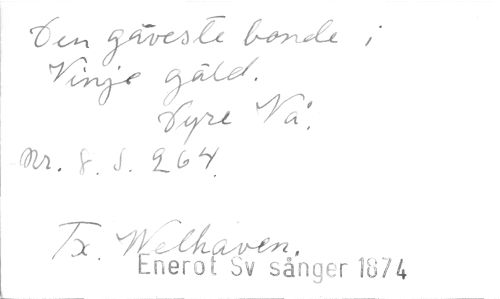 Den gäveste bonde i
Vinje gäld.
Dyre Vå.
Nr. 8. S. 264.
Tx. Welhaven.
Enerot Sv sånger 1874